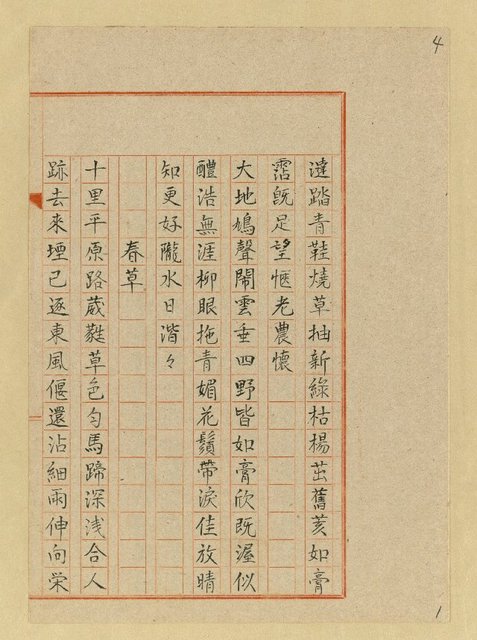 4
漣踏青鞋燒草抽新綠枯楊茁舊荄如膏
霑既足望愜老農懷
大地鳩聲鬧雲垂四野皆如膏欣既渥似
醴浩無涯柳眼拖青媚花鬚帶淚佳放晴
知更好隴水日潛々
春草
十里平原路葳蕤草色勻馬蹄深淺合人
跡去來堙已逐東風偃還沾細雨伸向榮
1